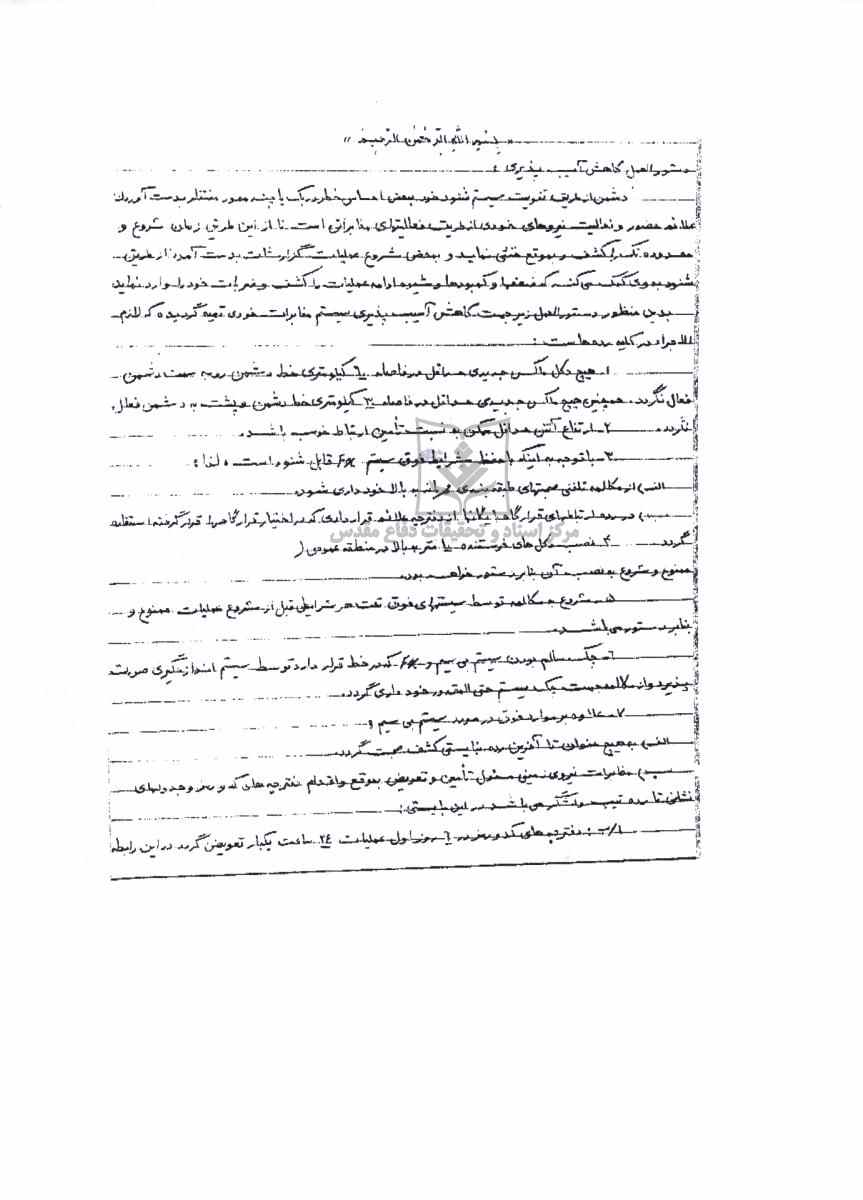 « بسم الله الرحمن الرحیم »
دستورالعمل کاهش آسیب پذیری :
دشمن از طریق تقویت سیستم شنود خود بمحض احساس خطر در یک یا چند محور منتظر بدست آوردن
علائم حضور و فعالیت نیروهای خودی از طریق فعالیتهای مخابراتی است تا از این طریق زمان شروع و
محدوده تک را کشف و بموقع خنثی نماید و بمحض شروع عملیات گزارشات بدست آمده از طریق
شنود به وی کمک می کند که ضعفها و کمبودها و شیوه ادامه عملیات را کشف و ضربات خود را وارد نماید
بدین منظور دستورالعمل زیر جهت کاهش آسیب پذیری سیستم مخابرات خودی تهیه گردیده که لازم
الاجراء در کلیه رده هاست :
۱- هیچ دکل ماکس جدیدی حداقل در فاصله ۶۰ کیلومتری خط دشمن رو به سمت دشمن
فعال نگردد. همچنین هیچ ماکس جدیدی حداقل در فاصله ۳۰ کیلومتری خط دشمن و پشت به دشمن فعال
نگردد.
۲- ارتفاع آنتن حداقل ممکن به نسبت تأمین ارتباط خوب باشد.
۳- با توجه به اینکه با حفظ شرایط فوق سیستم FX قابل شنود است ، لذا :
الف) از مکالمه تلفنی صحبتهای طبقه بندی محرمانه به بالا خودداری شود.
ب) در رده ارتباطهای قرارگاهها یگانها از دفترچه علائم قراردادی که در اختیار قرارگاهها قرار گرفته استفاده
گردد.
۴- نصب دکل های فرستنده ۱۰ متر به بالا در منطقه عمومی (
ممنوع و شروع به نصب آن بنا بر دستور خواهد بود.
۵- شروع به مکالمه توسط سیستمهای فوق تحت هر شرایطی قبل از شروع عملیات ممنوع و
بنابر دستور می باشد.
۶- چک سالم بودن سیستم بی سیم و FX که در خط قرار دارد توسط سیستم اندازه گیری صورت
پذیرد و از مکالمه جهت چک سیستم حتی المقدور خودداری گردد.
۷- علاوه بر موارد فوق در مورد سیستم بی سیم و
الف) به هیچ عنوان تا آخرین رده نبایستی کشف صحبت گردد.
ب) مخابرات نیروی زمینی مسئول تأمین و تعویض بموقع و اقدام دفترچه های کد و رمز و جدولهای
نشانی تا رده تیپ و لشگر می باشد در این بایستی :
۱/ب : دفترچه های کد و رمز در ۶ روز اول عملیات ۲۴ ساعت یکبار تعویض گردد در این رابطه
مرکز اسناد و تحقیقات دفاع مقدس